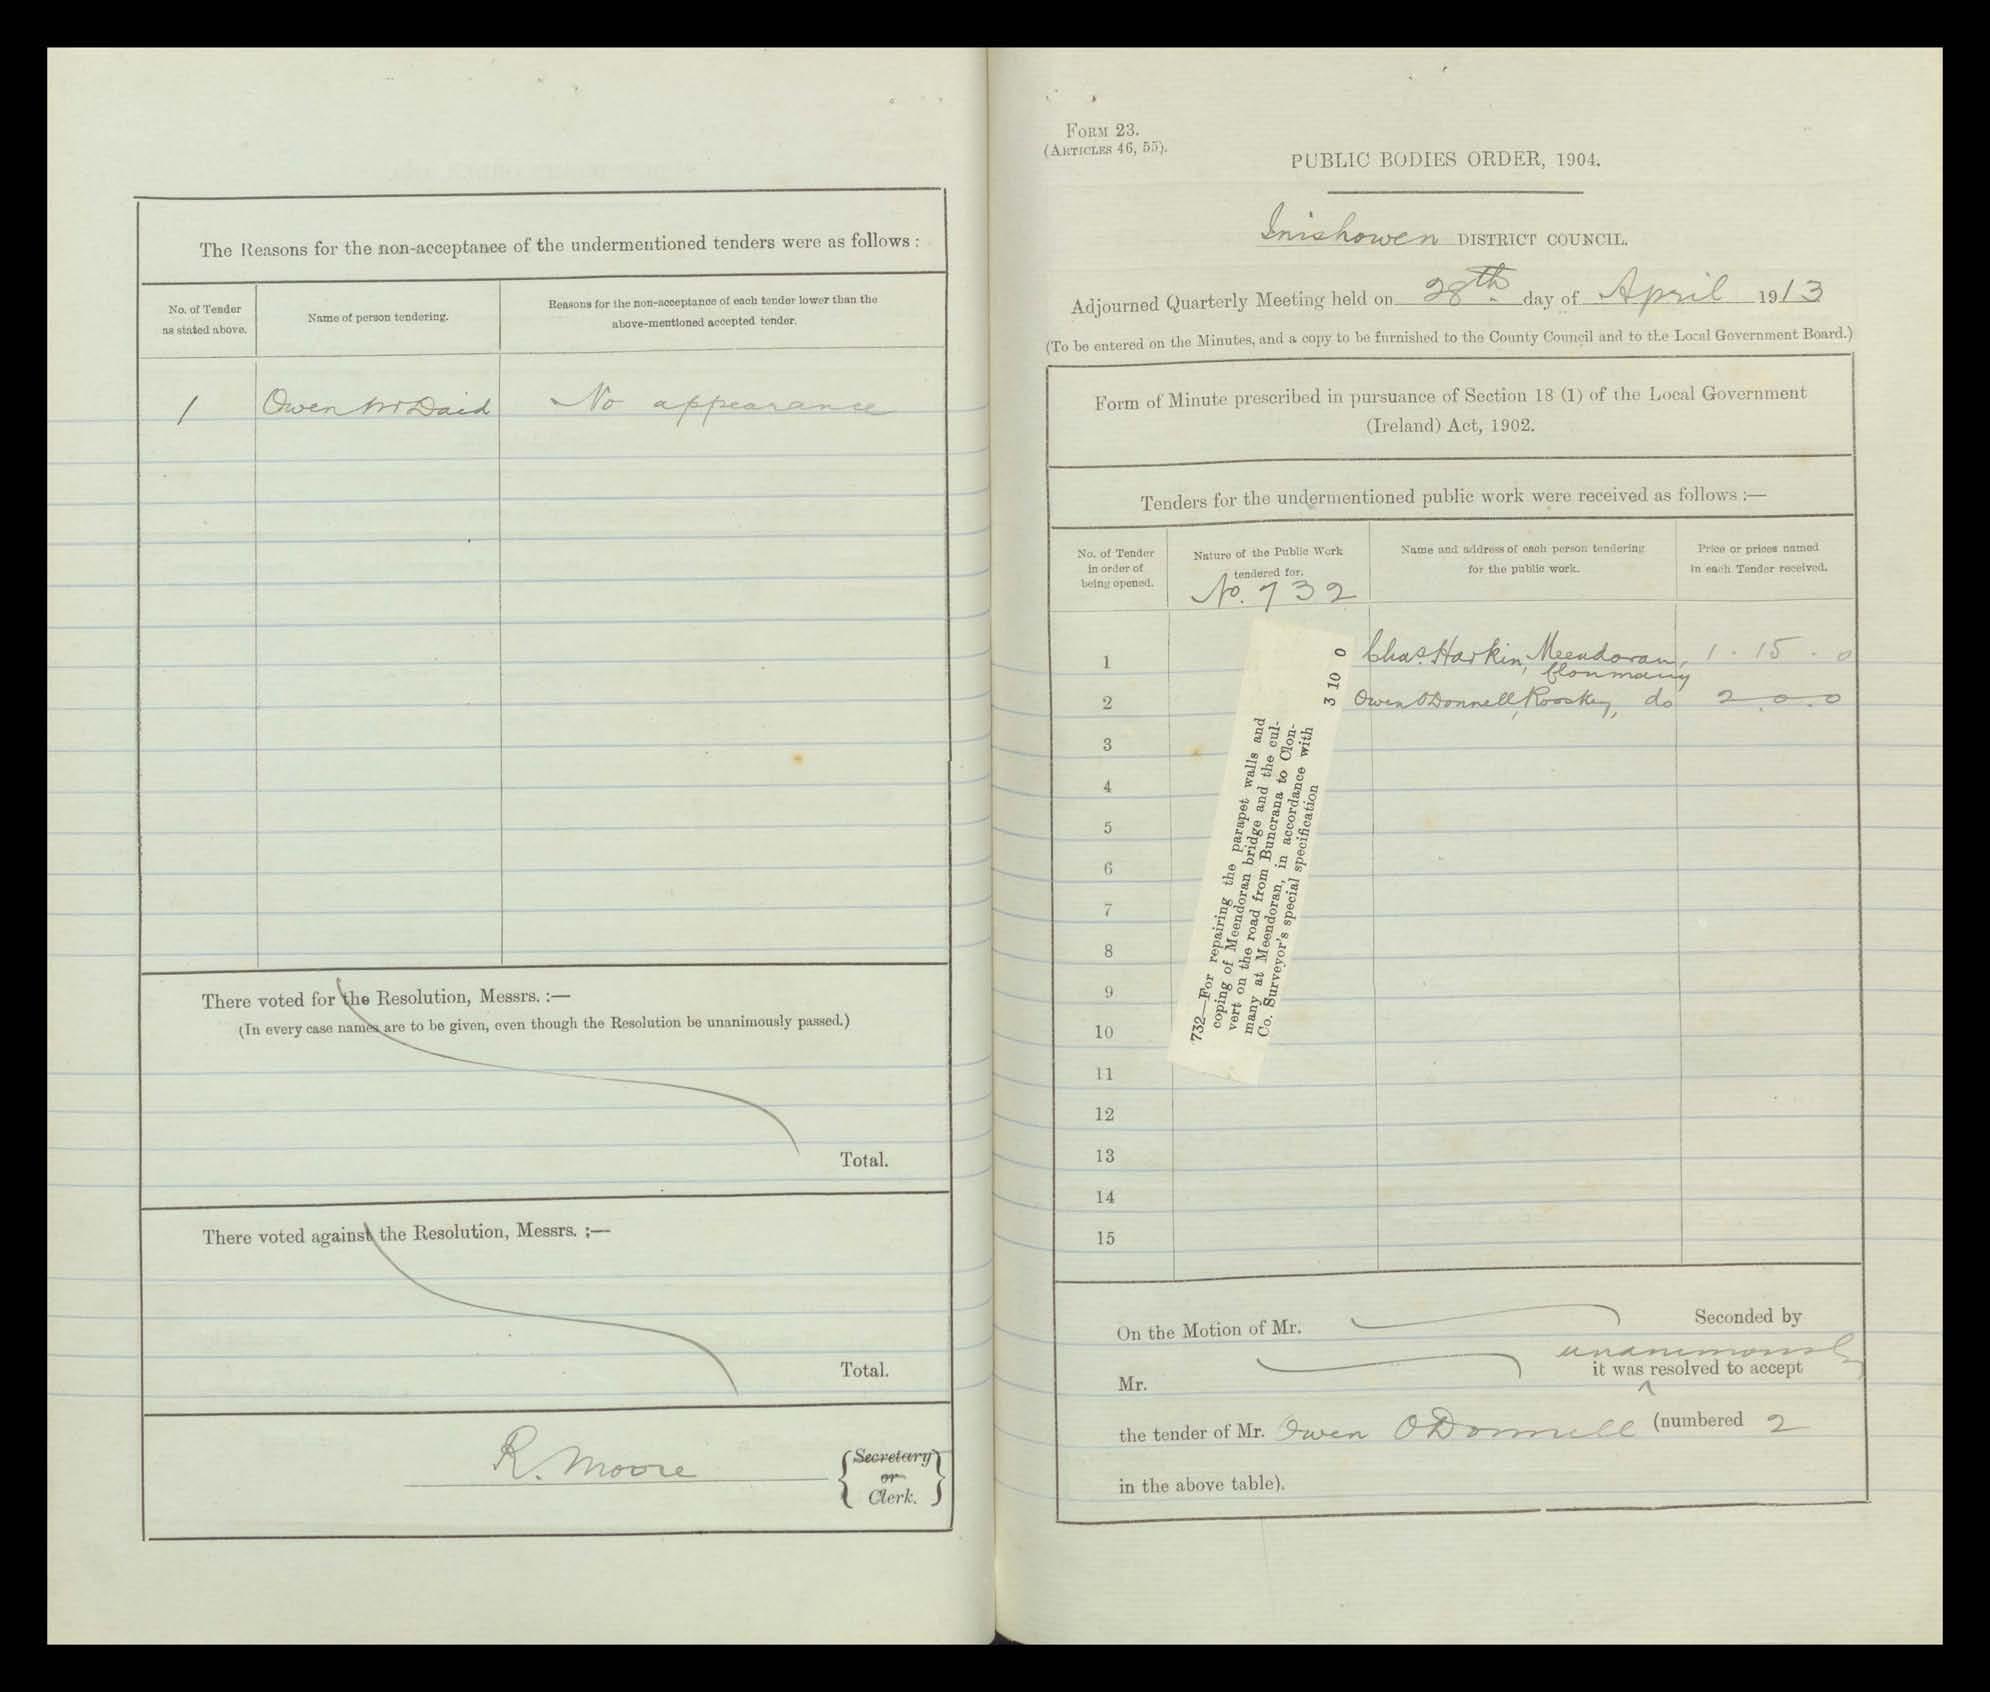 The Reasons for the non-acceptance of the undermentioned tenders were as follows :
No. of Tender
as stated above.
Name of person tendering.
Reasons for the non-acceptance of each tender lower than the
above-mentioned accepted tender.
1 Owen McDaid No appearance
There voted for the Resolution, Messrs. :—
(In every case names are to be given, even though the Resolution be unanimously passed.)
Total.
There voted against the Resolution, Messrs. :—
Total.
R. Moore
Secretary
or
Clerk.
FORM 23.
(ARTICLES 46, 55).
PUBLIC BODIES ORDER, 1904.
Inishowen DISTRICT COUNCIL.
Adjourned Quarterly Meeting held on 28th day of April 1913
(To be entered on the Minutes, and a copy to be furnished to the County Council and to the Local Government Board.)
Form of Minute prescribed in pursuance of Section 18 (1) of the Local Government
(Ireland) Act, 1902.
Tenders for the undermentioned public work were received as follows :—
No. of Tender
in order of
being opened.
Nature of the Public Work
tendered for.
No. 732
Name and address of each person tendering
for the public work.
Price or prices named
in each Tender received.
732—For repairing the parapet walls and
coping of Meendoran bridge and the cul-
vert on the road from Buncrana to Clon-
many at Meendoran, in accordance with
Co. Surveyor's special specification 3 10 0
1 Chas. Harkin, Meendoran, 1 . 15 . 0
Clonmany
2 Owen O'Donnell, Rooskey, do 2 . 0 . 0
3
4
5
6
7
8
9
10
11
12
13
14
15
On the Motion of Mr. Seconded by
unanimously
Mr. it was ^ resolved to accept
the tender of Mr. Owen O'Donnell (numbered 2
in the above table).